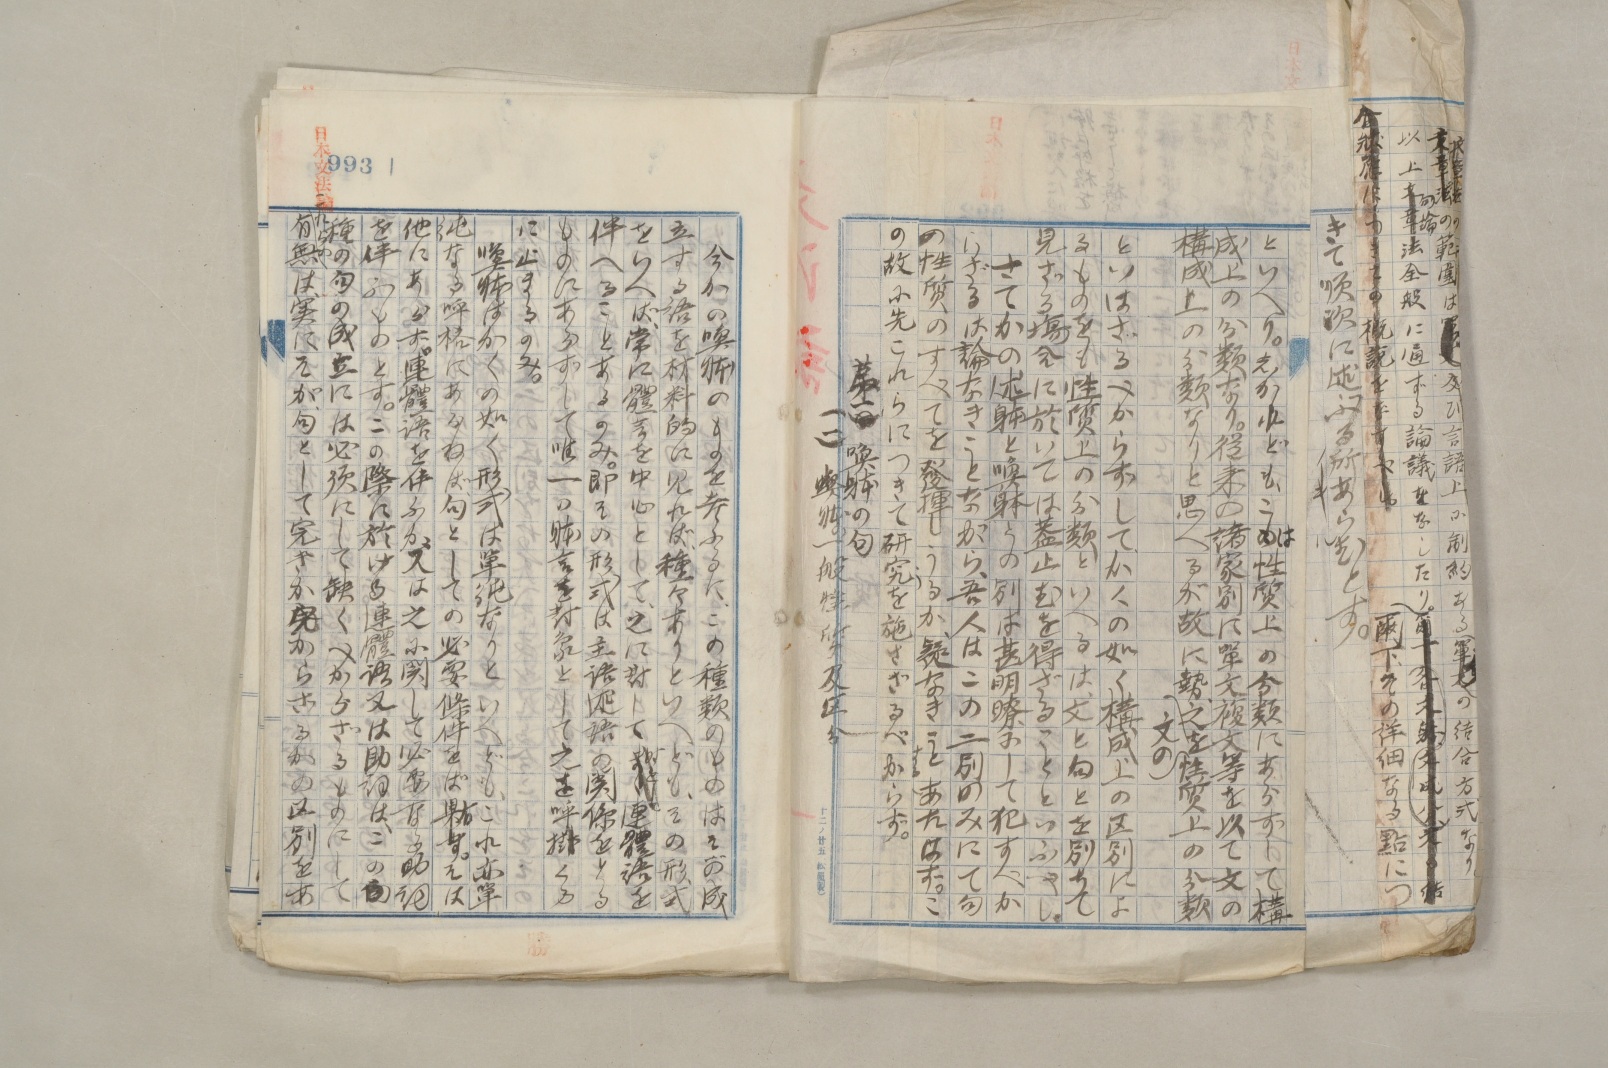 以上文章法全般に通ずる論議をなしたり。
爾下その詳細なる點につ
きて順次に述ぶる所あらむとす。
といへり。されども、こは性質上の分類にあらずして構
成上の分類なり。従来の諸家別に単文複文等を以て文の
構成上の分類なりと思へるが故に勢、之を性質上の分類
(文の)
といはざるべからずして、かくの如く構成上の区別によ
るものをも性質上の分類といへるは、文と句とを別ちて
見ざる場合に於いては蓋止むを得ざることといふべし。
さてかの、述躰と喚躰との別は甚明瞭にして犯すべか
らざるは論なきことながら、吾人はこの二別のみにて句
の性質のすべてを發揮しうるか、疑なきことあたはず。こ
の故に先これらにつきて研究を施さざるべからず。
第二 喚躰の句
(一) 喚躰一般 性質及区分
日本文法論
993
今かの喚躰のものを考ふるに、この種類のものはその成
立する語を材料的に見れば、種々ありといへども、その形式
をいへば、常に體言を中心として、之に對して 連體語を
伴へることあるのみ。即その形式は主語述語の関係をとる
ものにあらずして唯一の躰言を對象として之を呼掛くる
に止まるのみ。
喚躰はかくの如く形式は單純なりといへども、これ亦單
純なる呼格にあらねば、句としての必要條件をば具す。そは
他にあらず、連體語を伴ふか、又は之に関して必要なる助詞
を伴ふものとす。この際に於ける連體語又は助詞は、この
種の句の成立には必須にして缺くべからざるものにして
有無は実にそが句として完きか完からざるかの区別をあ